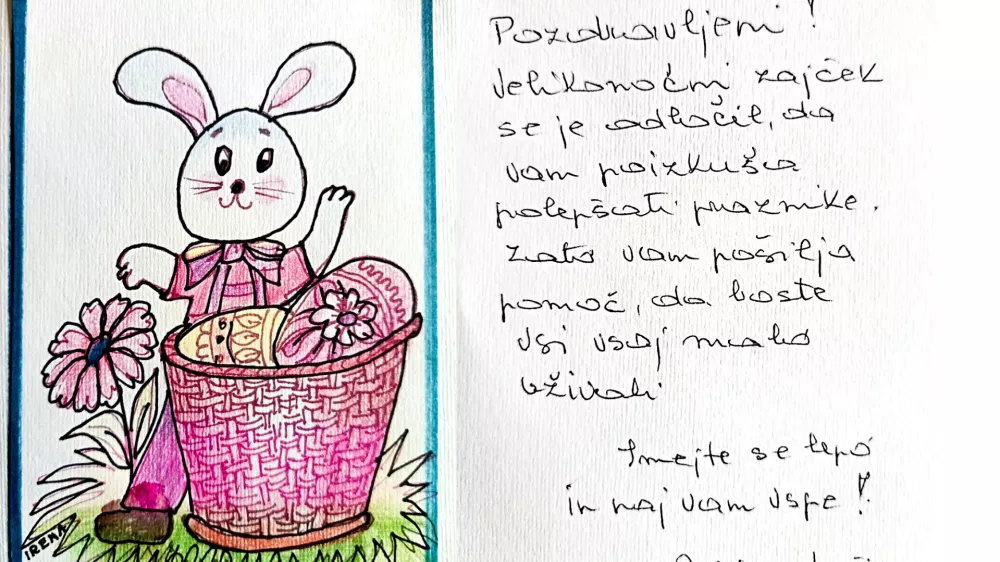 Pozdravljeni!
Velikonočni zajček
se je odločil, da
vam poizkuša
polepšati praznike.
Zato vam pošilja
pomoč, da boste
vsi vsaj malo
uživali
Imejte se lepo
in naj vam uspe!
IRENA